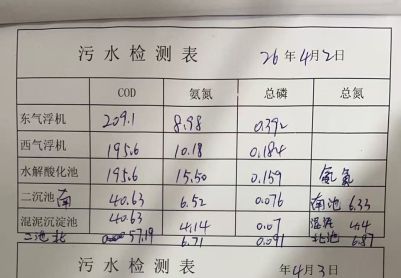 污水检测表 26年4月2日
COD 氨氮 总磷 总氮
东气浮机 209.1 8.98 0.392
西气浮机 195.6 10.18 0.184
水解酸化池 195.6 15.50 0.159 氨氮
二沉池南 40.63 6.52 0.076 南池 6.33
混泥沉淀池 40.63 4.14 0.07 混泥 4.4
二池北 57.19 6.71 0.091 北池 6.87
污水检测表 年4月3日